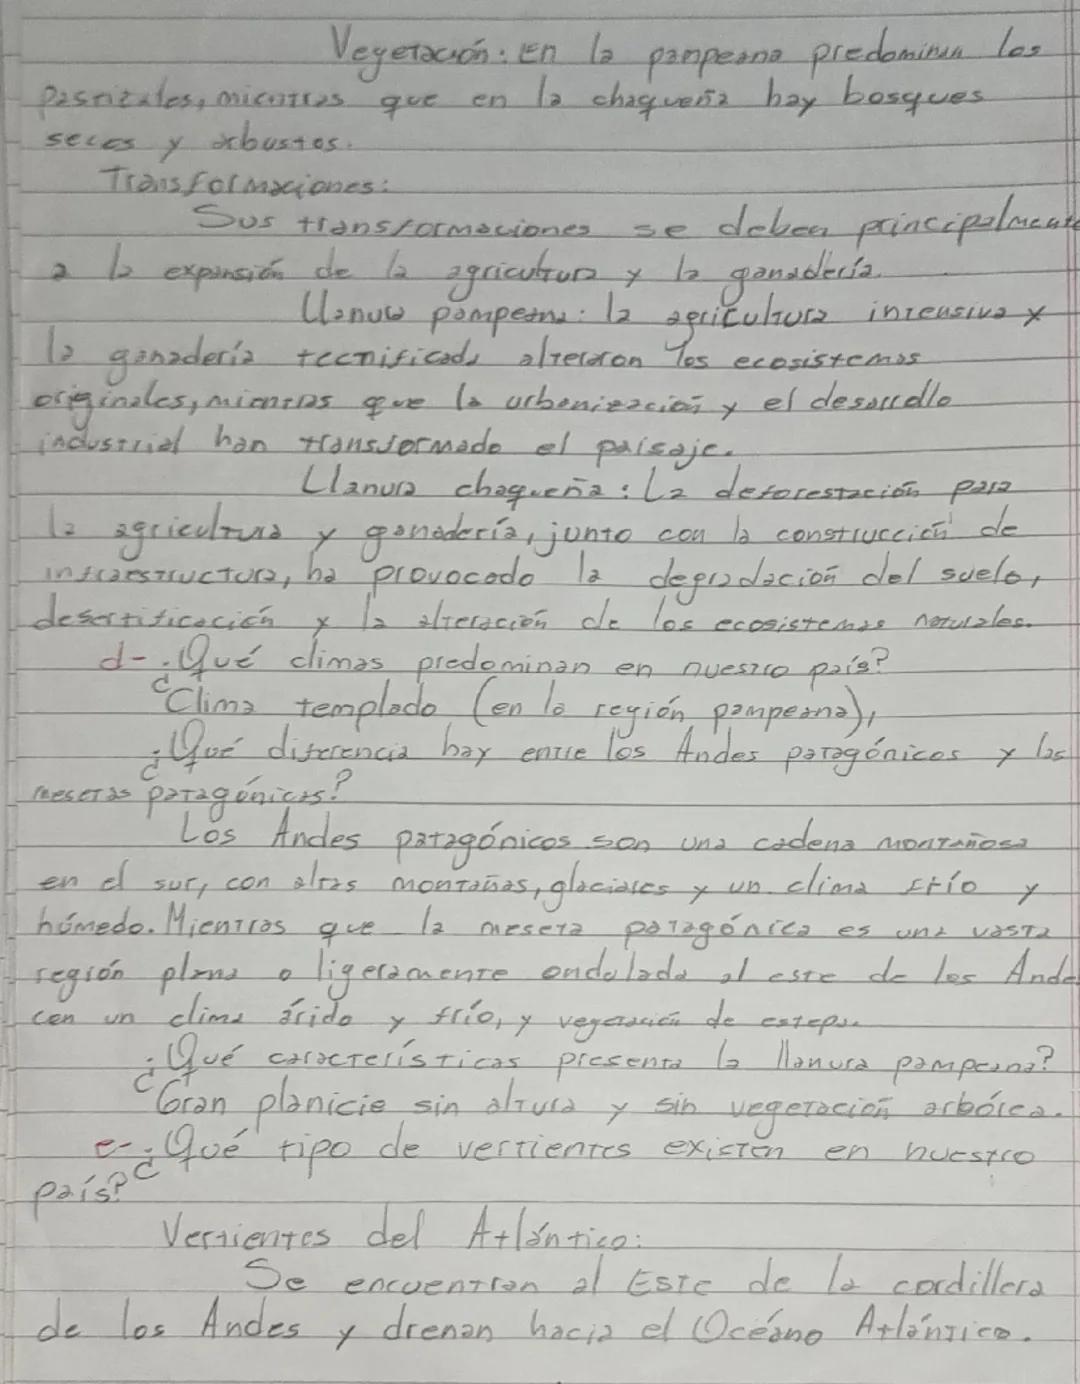 Vegetación: En la pampeana predominan los
pastizales, mientras que en la chaqueña hay bosques
secos y arbustos.
Transformaciones:
Sus transformaciones se deben principalmente
a la expansión de la agricultura y la ganadería.
Llanura pampeana: la agricultura intensiva y
la ganadería tecnificada alteraron los ecosistemas
originales, mientras que la urbanización y el desarrollo
industrial han transformado el paisaje.
Llanura chaqueña: La deforestación para
la agricultura y ganadería, junto con la construcción de
infraestructura, ha provocado la degradación del suelo,
desertificación y la alteración de los ecosistemas naturales.
d- ¿Qué climas predominan en nuestro país?
Clima templado (en la región pampeana),
¿Qué diferencia hay entre los Andes patagónicos y las
mesetas patagónicas?
Los Andes patagónicos son una cadena montañosa
en el sur, con altas montañas, glaciares y un clima frío y
húmedo. Mientras que la meseta patagónica es una vasta
región plana o ligeramente ondulada al este de los Ande
con un clima árido y frío, y vegetación de estepa.
¿Qué características presenta la llanura pampeana?
Gran planicie sin altura y sin vegetación arbórea.
e- ¿Qué tipo de vertientes existen en nuestro
país?
Vertientes del Atlántico:
Se encuentran al Este de la cordillera
de los Andes y drenan hacia el Océano Atlántico.